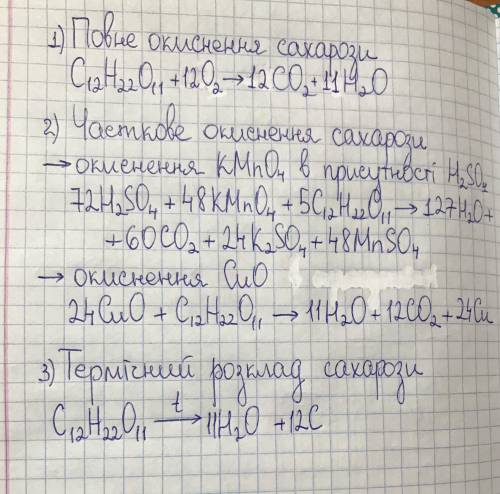 1) Повне окиснення сахарози
C₁₂H₂₂O₁₁ + 12O₂ → 12CO₂ + 11H₂O
2) Часткове окиснення сахарози
→ окиснення KMnO₄ в присутності H₂SO₄
72H₂SO₄ + 48KMnO₄ + 5C₁₂H₂₂O₁₁ → 127H₂O +
+ 60CO₂ + 24K₂SO₄ + 48MnSO₄
→ окиснення CuO
24CuO + C₁₂H₂₂O₁₁ → 11H₂O + 12CO₂ + 24Cu
3) Термічний розклад сахарози
t
C₁₂H₂₂O₁₁ → 11H₂O + 12C